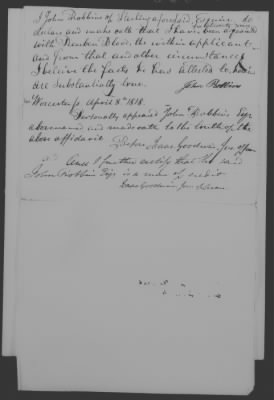 I John Robbins of Sterling aforesaid Esquire do
declare and make oath that I have been acquainted
with Reuben Dior, the within applicant
and from that and other circumstances
I believe the facts he has attested to
are substantially true.
John Robbins
Worcester ss. April 8th 1818.
Personally appeared John Robbins Esqr
abovenamed and made oath to the truth of the
above affidavit.
Before Isaac Goodwin Jus. of
And I further certify that the said
John Robbins Esqr is a man of credit
Isaac Goodwin Jus.